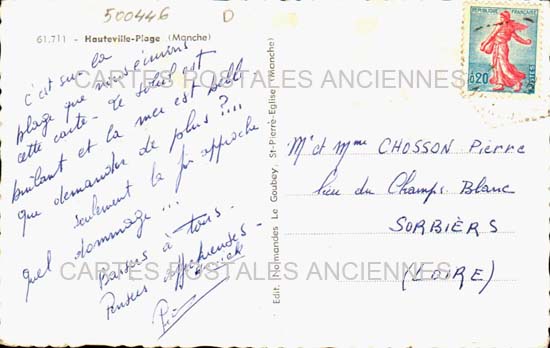 500446
D
61.711 - Hauteville-Plage (Manche)
C'est sur la
plage que nous écrivons
cette carte - Le soleil est
brûlant et la mer est belle
que demander de plus ?...
seulement la fin approche
Quel dommage...
Baisers à tous.
Pensées affectueuses -
Edit. Normandes Le Goubey, St-Pierre-Eglise (Manche)
REPUBLIQUE FRANÇAISE
0,20
POSTES
Mr et Mme CHOSSON Pierre
lieu du Champs Blanc
SORBIÈRS
(LOIRE)
CARTES POSTALES ANCIENNES
CARTES POSTALES ANCIENNES